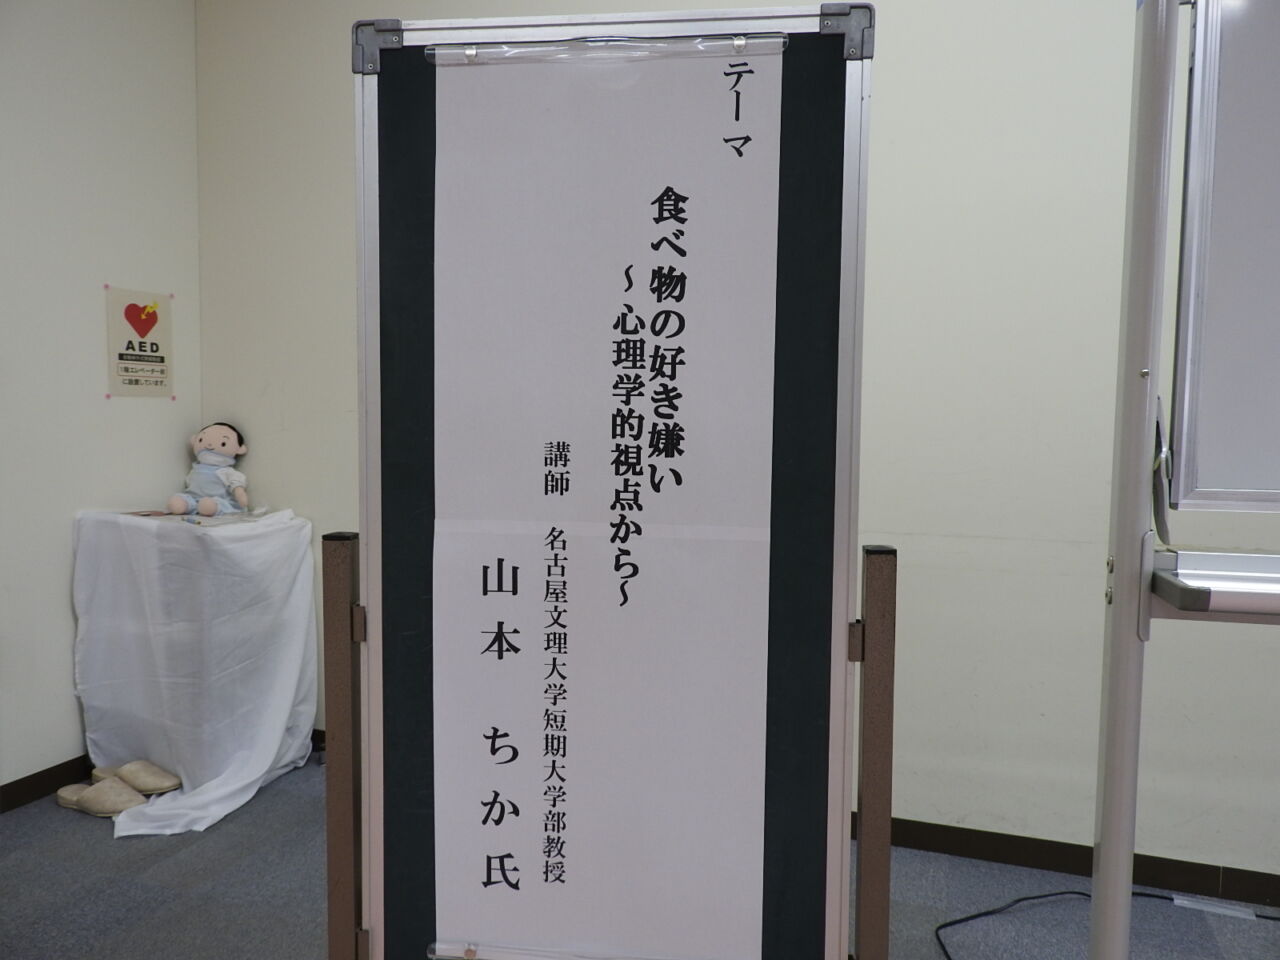 テーマ
食べ物の好き嫌い
～心理学的視点から～
講師　名古屋文理大学短期大学部教授
山本　ちか氏
AED
1階エレベーター前
に設置しています。